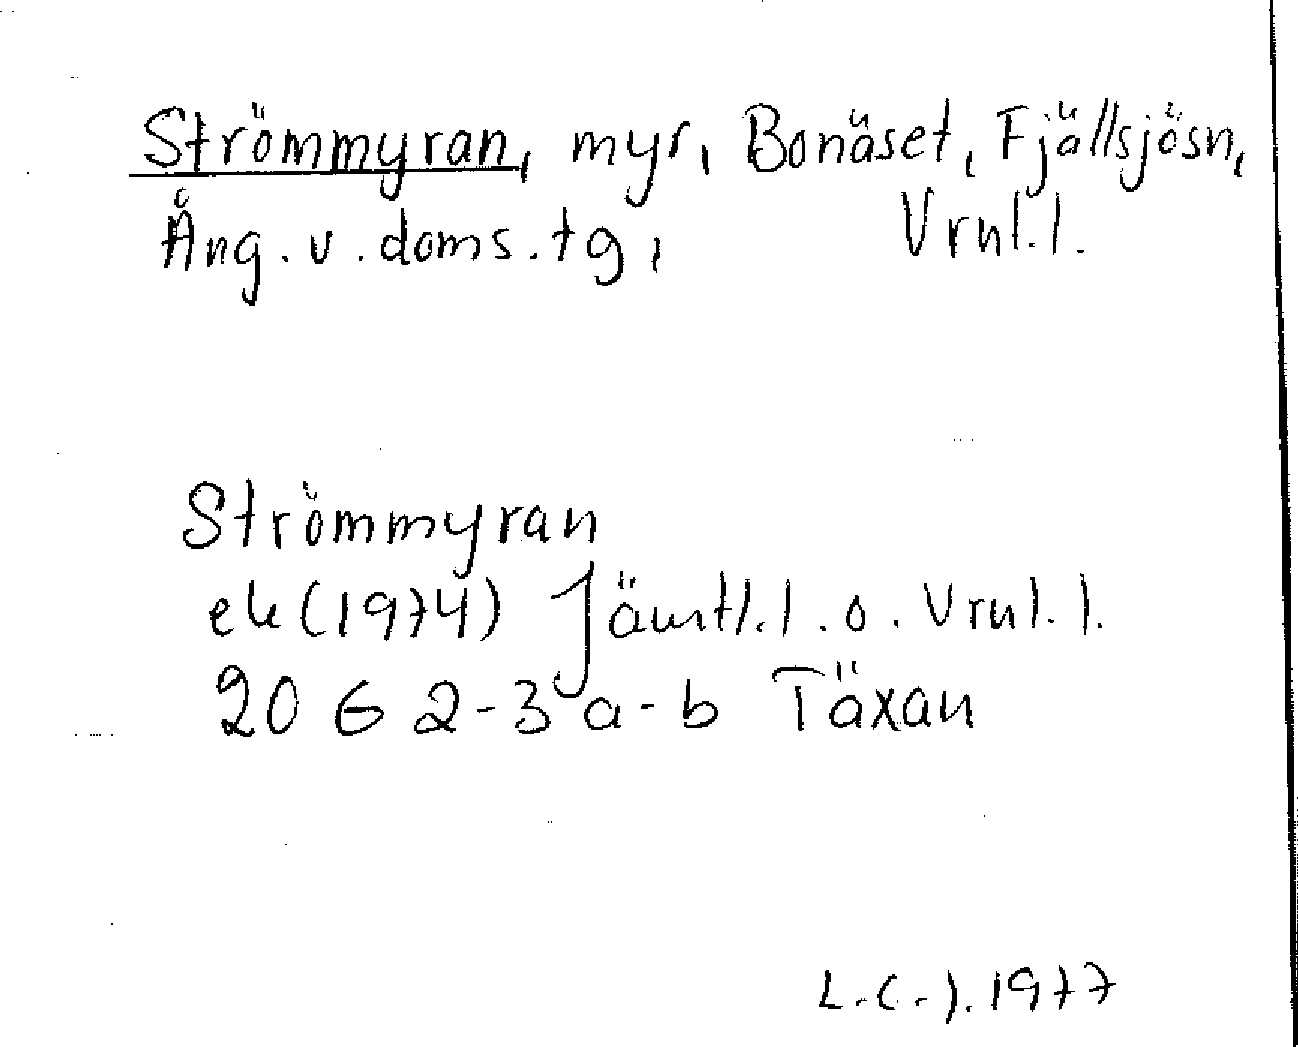 Strömmyran, myr, Bonäset, Fjällsjösn,
Ång. v. doms. tg, Vrnl. l.
Strömmyran
ek (1974) Jämtl. l. o. Vrnl. l.
20 G 2-3 a-b Täxan
L.C.J. 1977